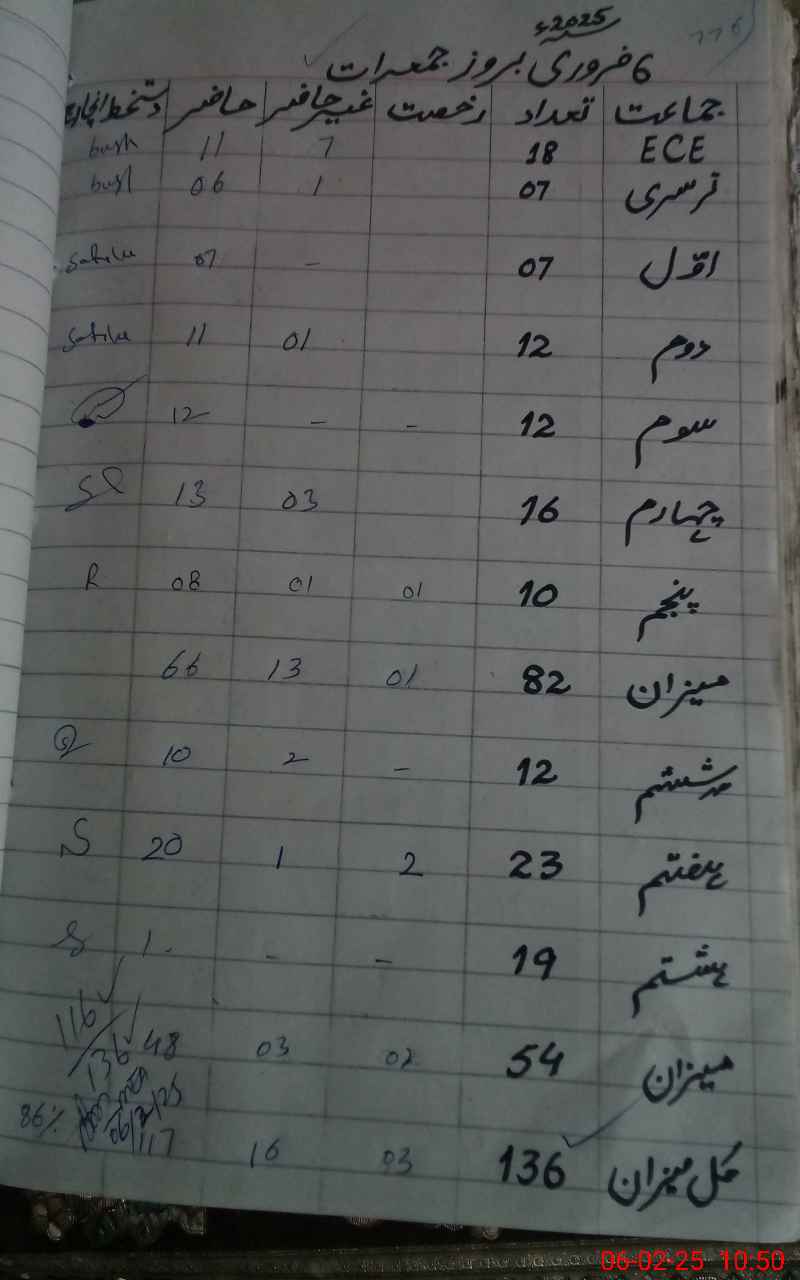 2025ء
6 فروری بروز جمعرات
جماعت تعداد رخصت غیر حاضر حاضر دستخط انچارج
ECE 18 7 11 bush
نرسری 07 1 06 bush
اوّل 07 - 07
دوم 12 01 11
سوم 12 - - 12
چہارم 16 03 13
پنجم 10 01 01 08 R
میزان 82 01 13 66
ششم 12 - 2 10
ہفتم 23 2 1 20 S
ہشتم 19 - - 1
میزان 54 02 03 48 116/136
کل میزان 136 03 16 117 06/2/25 86%
06-02-25 10:50